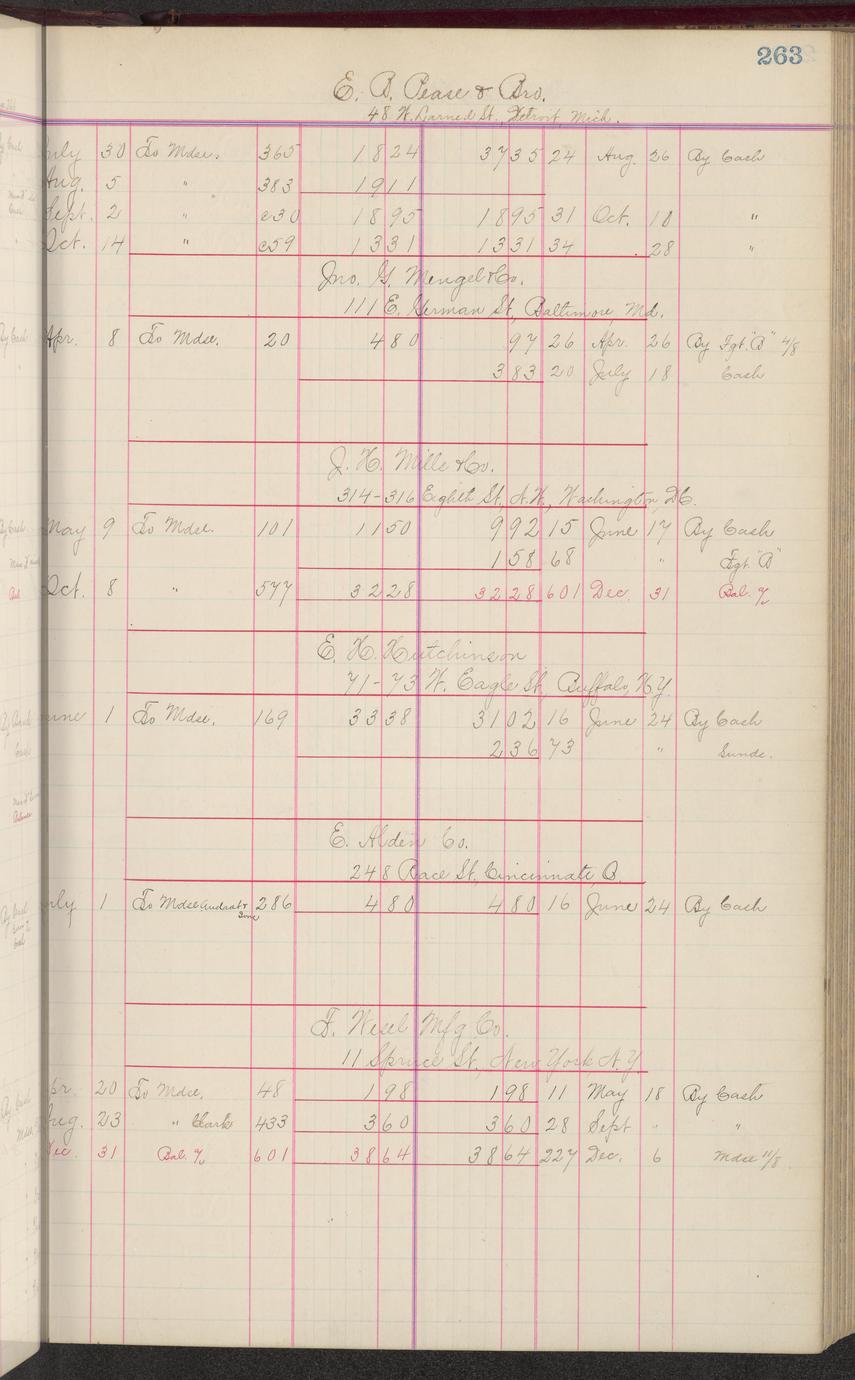 263
E. B. Pease & Bro.
48 W. Larned St., Detroit, Mich.
July 30 To Mdse. 365 1824 3735 24 Aug. 26 By Cash
Aug. 5 " 383 1911
Sept. 2 " c30 1895 1895 31 Oct. 10 "
Oct. 14 " c59 1331 1331 34 . 28 "
Jno. G. Mengel & Co.
111 E. German St., Baltimore, Md.
Apr. 8 To Mdse. 20 480 97 26 Apr. 26 By Fgt. "B" 4/8
383 20 July 18 Cash
J. H. Mills & Co.
314-316 Eighth St., N.W., Washington, D.C.
May 9 To Mdse. 101 1150 992 15 June 17 By Cash
158 68 " Fgt. "B"
Oct. 8 " 577 3228 3228 601 Dec. 31 Bal. %
E. H. Hutchinson
71-73 W. Eagle St., Buffalo, N.Y.
June 1 To Mdse. 169 3338 3102 16 June 24 By Cash
236 73 " Sunds.
E. Alden Co.
248 Race St., Cincinnati, O.
July 1 To Mdse 286 480 480 16 June 24 By Cash
F. Wesel Mfg Co.
11 Spruce St., New York, N.Y.
Apr. 20 To Mdse. 48 198 198 11 May 18 By Cash
Aug. 23 " Clark 433 360 360 28 Sept " "
Dec. 31 Bal. % 601 3864 3864 227 Dec. 6 Mdse 11/8